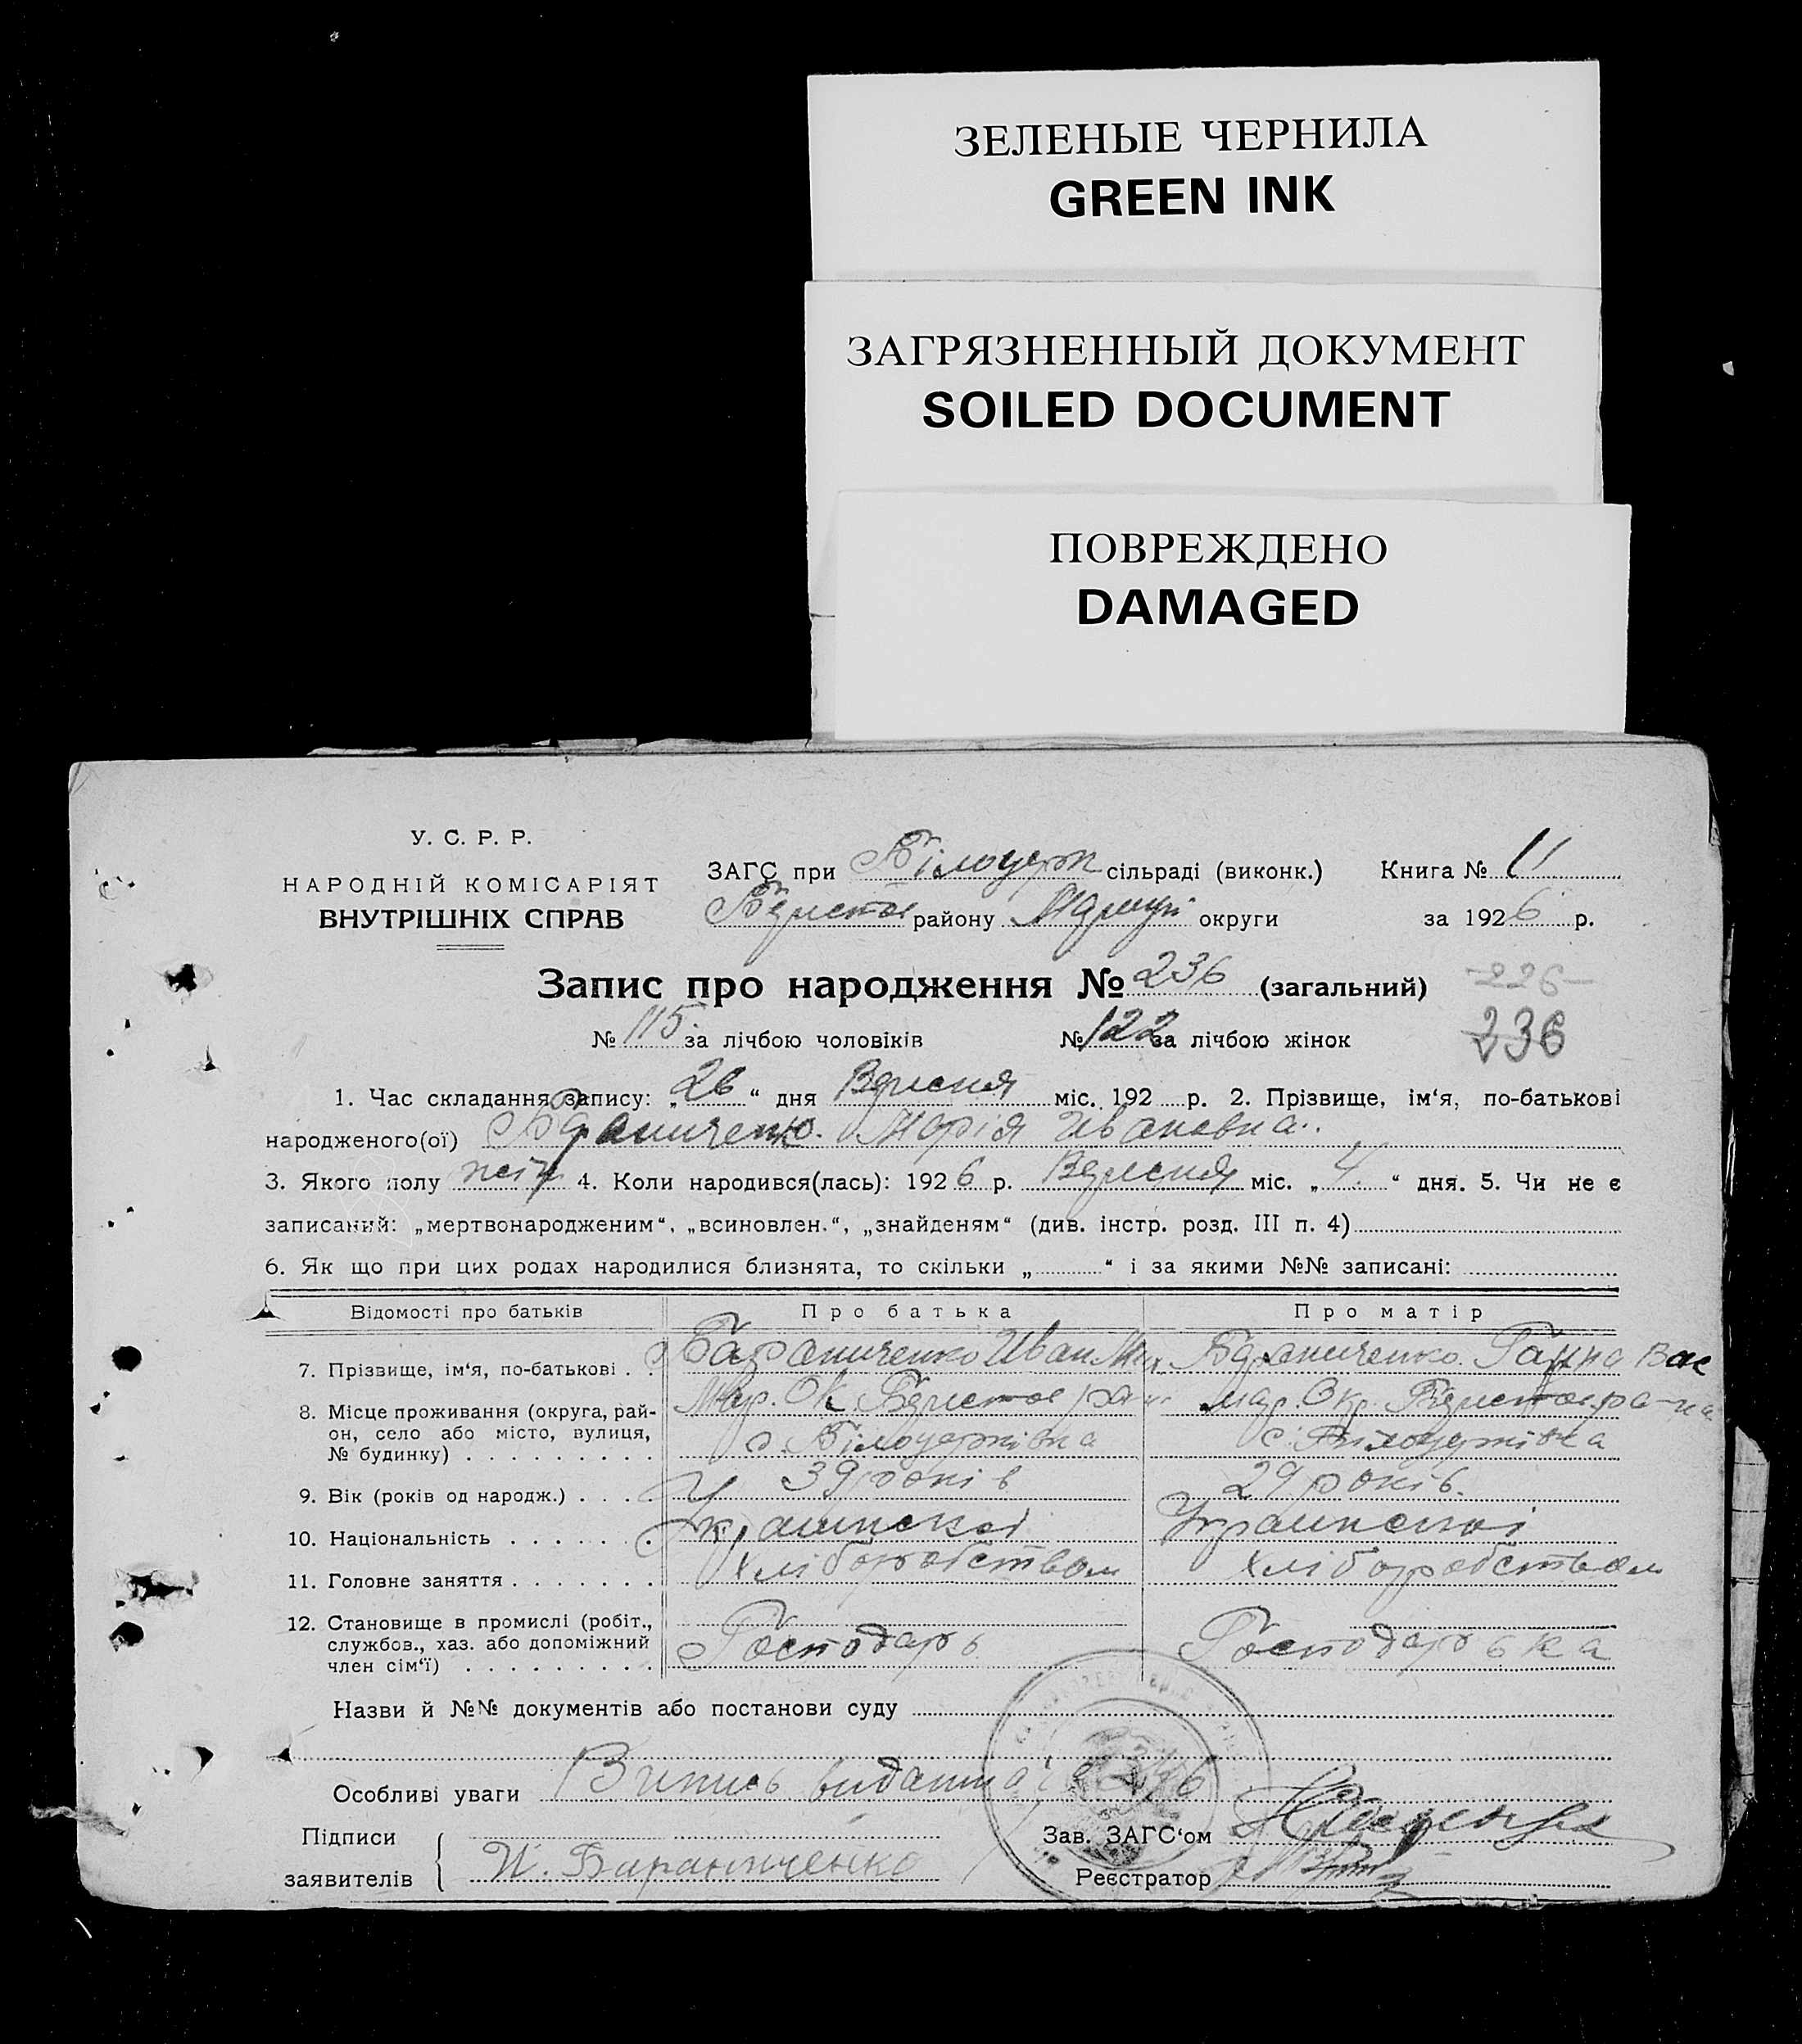 ЗЕЛЕНЫЕ ЧЕРНИЛА
GREEN INK
ЗАГРЯЗНЕННЫЙ ДОКУМЕНТ
SOILED DOCUMENT
ПОВРЕЖДЕНО
DAMAGED
У. С. Р. Р.
НАРОДНІЙ КОМІСАРІЯТ
ВНУТРІШНІХ СПРАВ
ЗАГС при Білоцерк сільраді (виконк.) Книга № 11
району округи за 1926 р.
Запис про народження № 236 (загальний) 226
№ 115 за лічбою чоловіків № 122 за лічбою жінок 236
1. Час складання запису: „26“ дня Вересня міс. 192 р. 2. Прізвище, ім‘я, по-батькові
народженого(ої) Бараниченко. Марія Ивановна.
3. Якого полу жіч 4. Коли народився(лась): 1926 р. Вересня міс. „4.“ дня. 5. Чи не є
записаний: „мертвонародженим“, „всиновлен.“, „знайденям“ (див. інстр. розд. III п. 4)
6. Як що при цих родах народилися близнята, то скільки „ “ і за якими №№ записані:
Відомості про батьків Про батька Про матір
7. Прізвище, ім‘я, по-батькові . . Бараниченко Иван Мих. Бараниченко Ганна Вас
8. Місце проживання (округа, рай- Мар. Ок. Мар. Окр.
он, село або місто, вулиця, с. Білоцерківка с. Білоцерківка
№ будинку) . . . . . . . . .
9. Вік (років од народж.) . . . . 39 років 29 років.
10. Національність . . . . . . . Украинскої Украинскої
11. Головне заняття . . . . . . . хліборобством хліборобством
12. Становище в промислі (робіт.,
службов., хаз. або допоміжний Господарь Господарька
член сім‘ї) . . . . . . . . .
Назви й №№ документів або постанови суду
Особливі уваги Випись видання
Підписи Зав. ЗАГС‘ом
заявителів И. Бараниченко Реєстратор